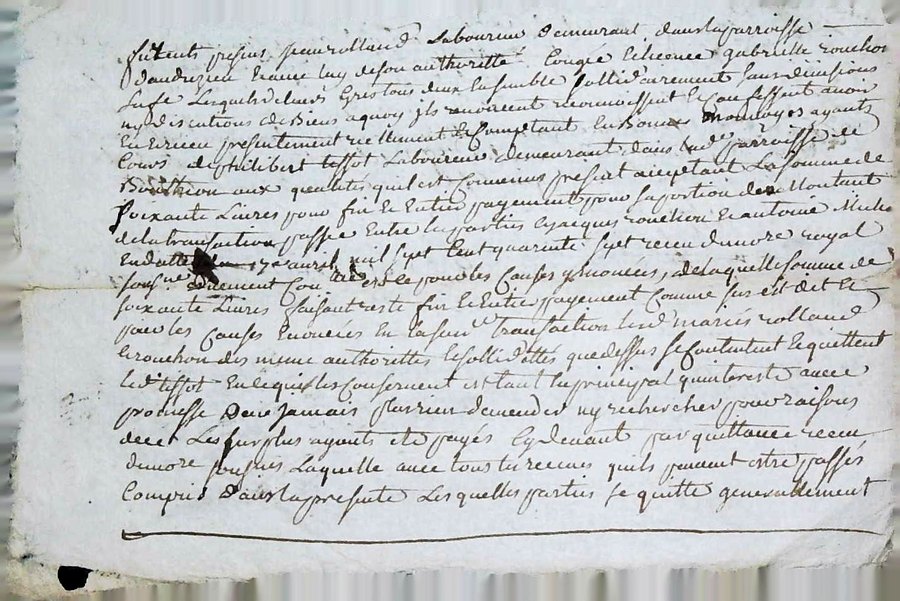 furent présens Jean rolland Laboureur demeurant dans la parroisse
d'andrezieu Et avec luy de son authoritté Congée Et licence gabrielle rouchon
sa fe Lesquels de leurs Gres tous deux Ensemble sollidairement sans divisions
ny discutions de Biens a quoy ils renoncent reconnoissent Et Confessent avoir
Eu Et receu présentement reellement Et Comptant En Bonnes monnoyes ayants
Cours de philibert tissot Laboureur demeurant dans lad parroisse de
Bouthéon aux qualités quil est Connu present acceptant La somme de
soixante Livres pour fin Et Entier payement pour sa portion des Montant
de la transaction passée Entre les parties Et jacques rouchon Et antoine
En datte du 17e avril mil sept Cent quarente sept receu du nore royal
soussigné et pour les Causes y Enoncées, de laquelle somme de
soixante Livres faisant reste fin Et Entier payement Comme sus est dit Et
pour les Causes Enoncées En la sus transaction lesd mariés rolland
Et rouchon des meme authorittés Et sollidittés que dessus se Contentent Et quittent
led tissot En ce qui les Concernent Et tant En principal quinterest avec
promesse De ne Jamais plus rien demender ny rechercher pour raisons
de ce Le surplus ayants été payés Cy devant par quittance receu
du nore soussigné Laquelle avec tous les receues quils peuvent estre passés
Compris Dans la présente Lesquelles parties se quitte generallement